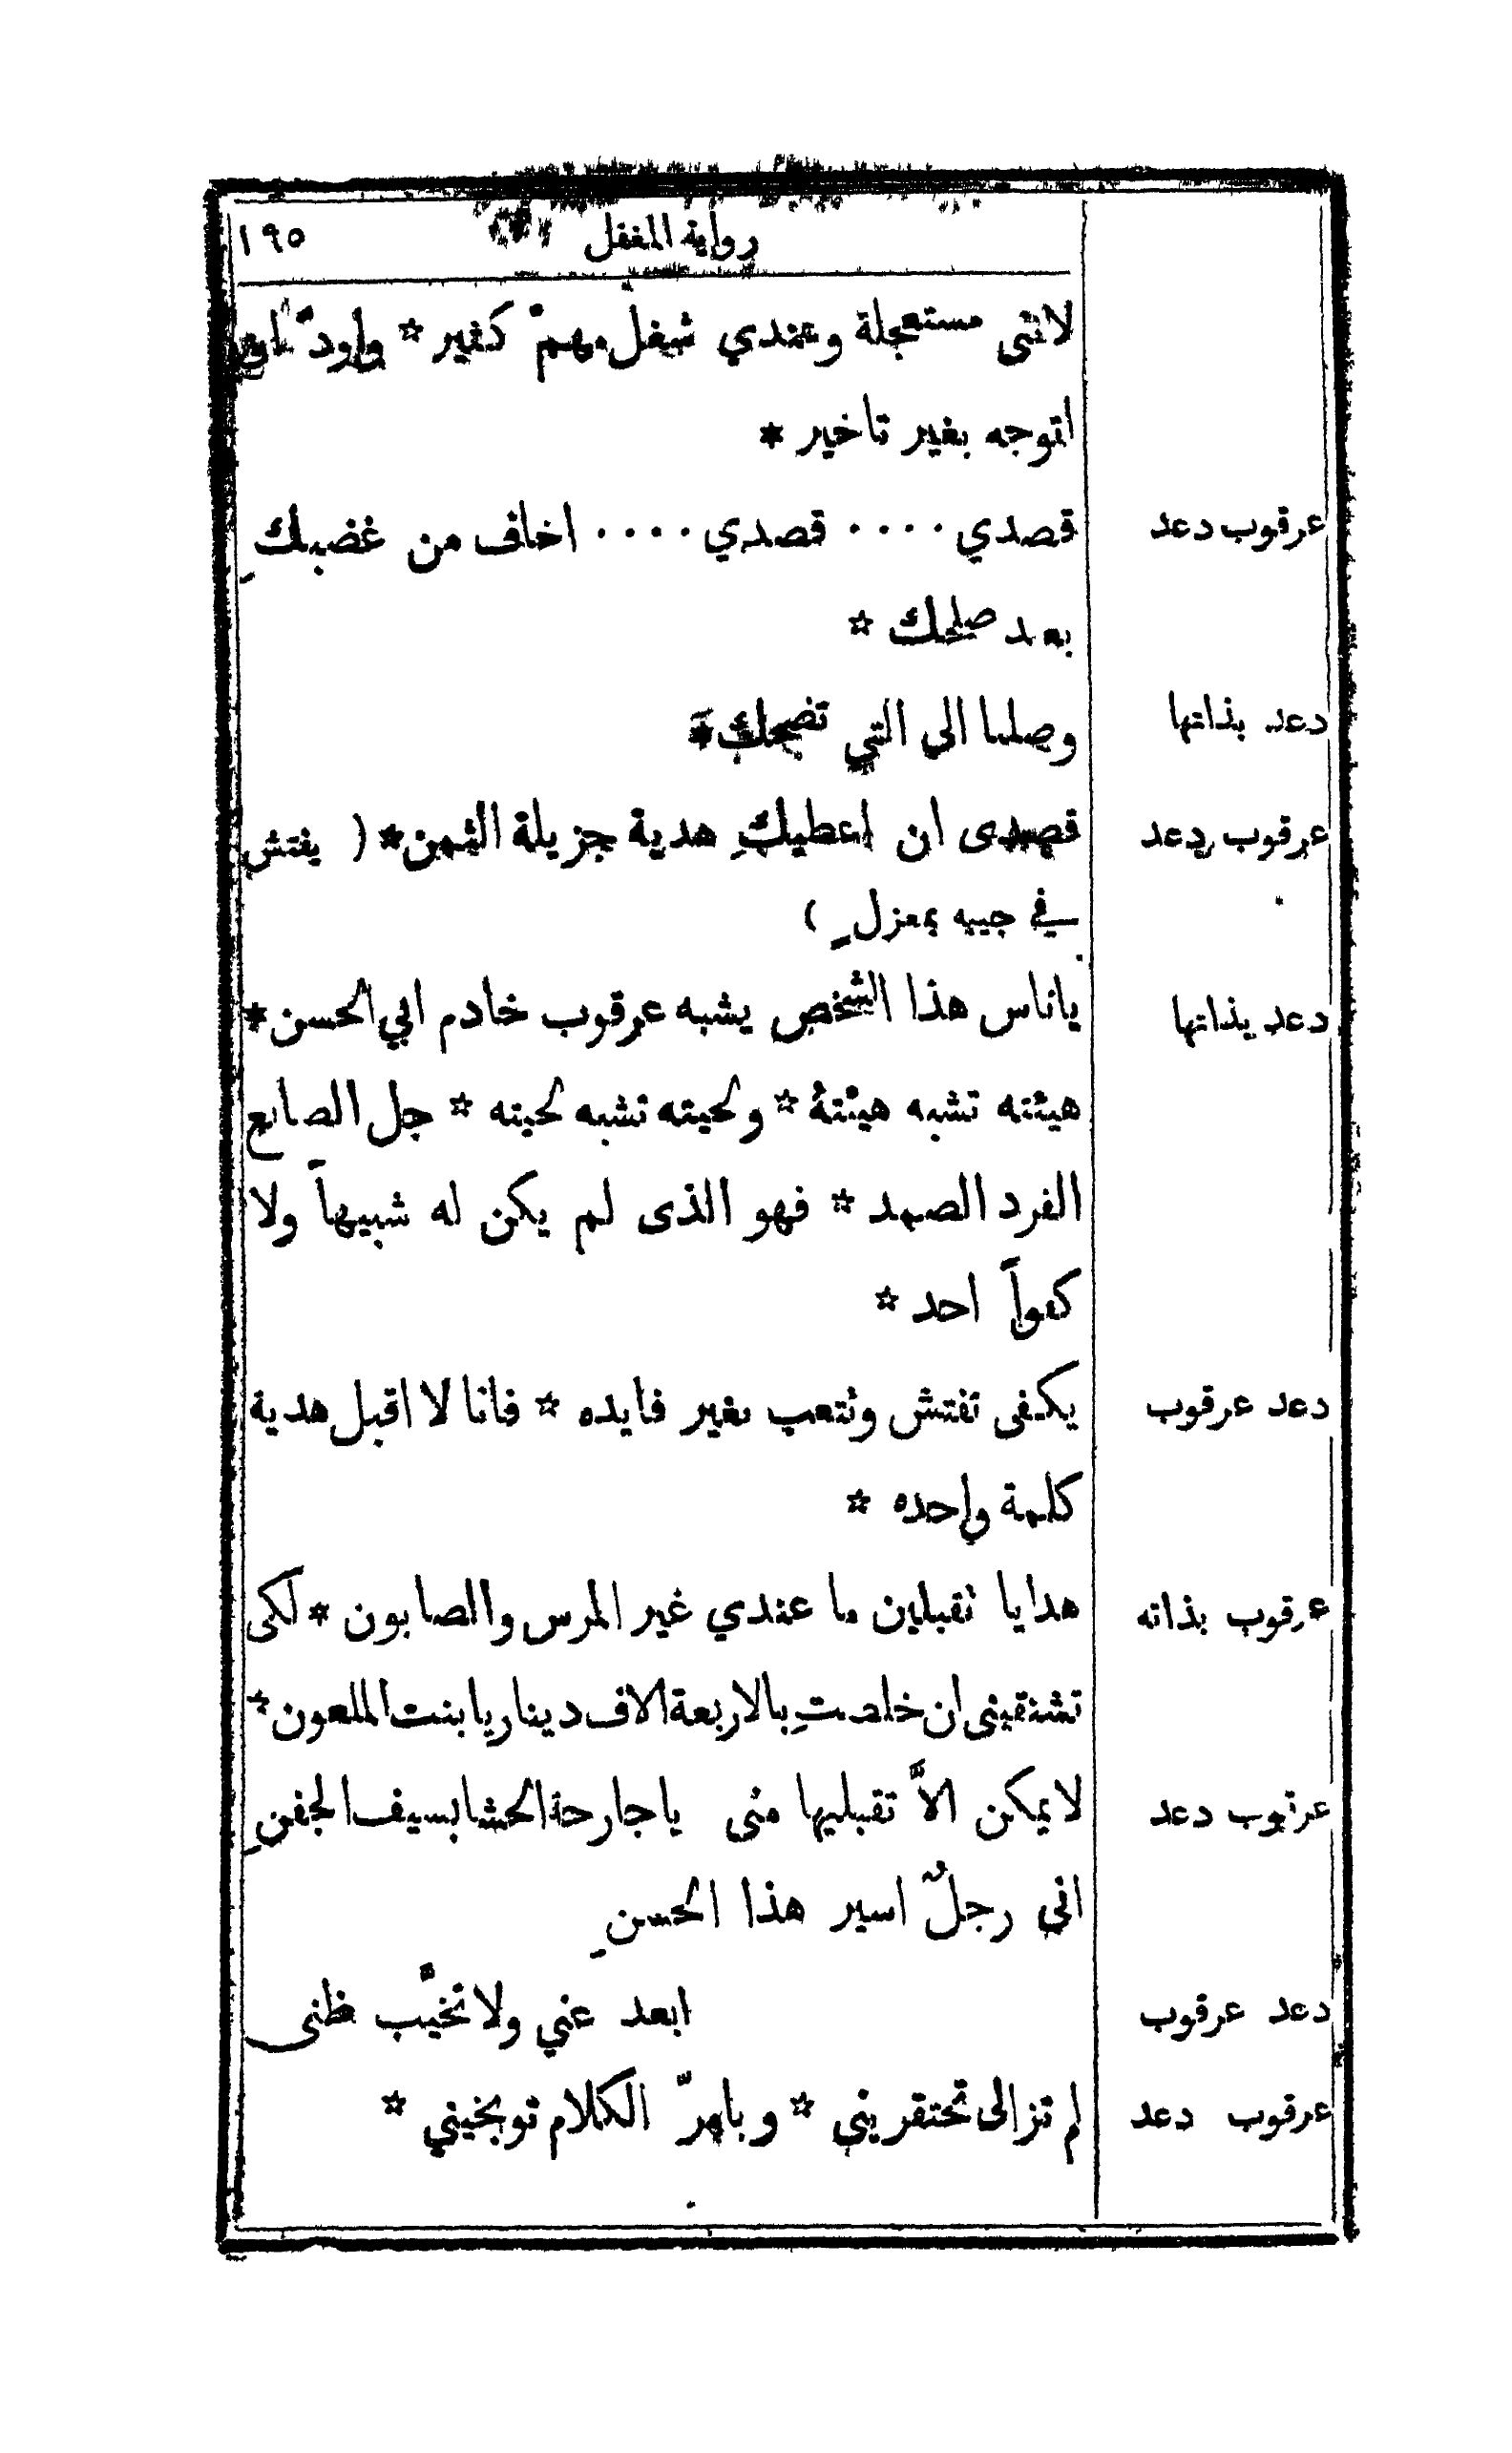 رواية المغفل ١٩٥
لانني مستعجلة وعندي شغل مهمّ كثير * واودّ
اتوجه بغير تاخير *
عرقوب دعد قصدي .... قصدي .... اخاف من غضبكِ
بعد صلحك *
دعد بذاتها وصلنا الى التي تضحك *
عرقوب دعد قصدى ان اعطيكِ هدية جزيلة الثمن * ( يفتش
في جيبه بمعزلٍ )
دعد بذاتها ياناس هذا الشخص يشبه عرقوب خادم ابي الحسن *
هيئته تشبه هيئتهُ * ولحيته تشبه لحيته * جل الصانع
الفرد الصمد * فهو الذى لم يكن له شبيهاً ولا
كفواً احد *
دعد عرقوب يكفى تفتش وتتعب بغير فايده * فانا لا اقبل هدية
كلمة واحده *
عرقوب بذاته هدايا تقبلين ما عندي غير المرس والصابون * لكى
تشنقينى ان خلصتِ بالاربعة الاف دينار يا بنت الملعون *
عرقوب دعد لا يمكن الاَّ تقبليها منى ياجارحة الحشا بسيف الجفنِ
اني رجلٌ اسير هذا الحسنِ
دعد عرقوب ابعد عني ولا تخيَّب ظنى
عرقوب دعد لم تزالى تحتقريني * وبامرّ الكلام توبخيني *